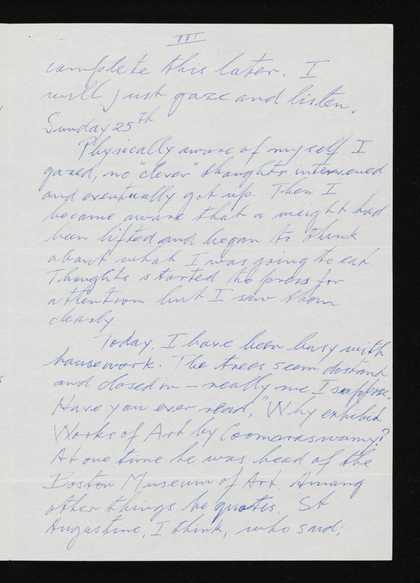 III
complete this later. I
will just gaze and listen.
Sunday 25th
Physically aware of myself I
gazed, no "clever" thoughts intervened
and eventually got up. Then I
became aware that a weight had
been lifted and began to think
about what I was going to eat.
Thoughts started to press for
attention but I saw them
clearly
Today, I have been busy with
housework. The trees seem distant
and closed in — really me I suppose.
Have you ever read, "Why exhibit
Works of Art by Coomaraswamy?
At one time he was head of the
Boston Museum of Art. Among
other things he quotes, St
Augustine, I think, who said;